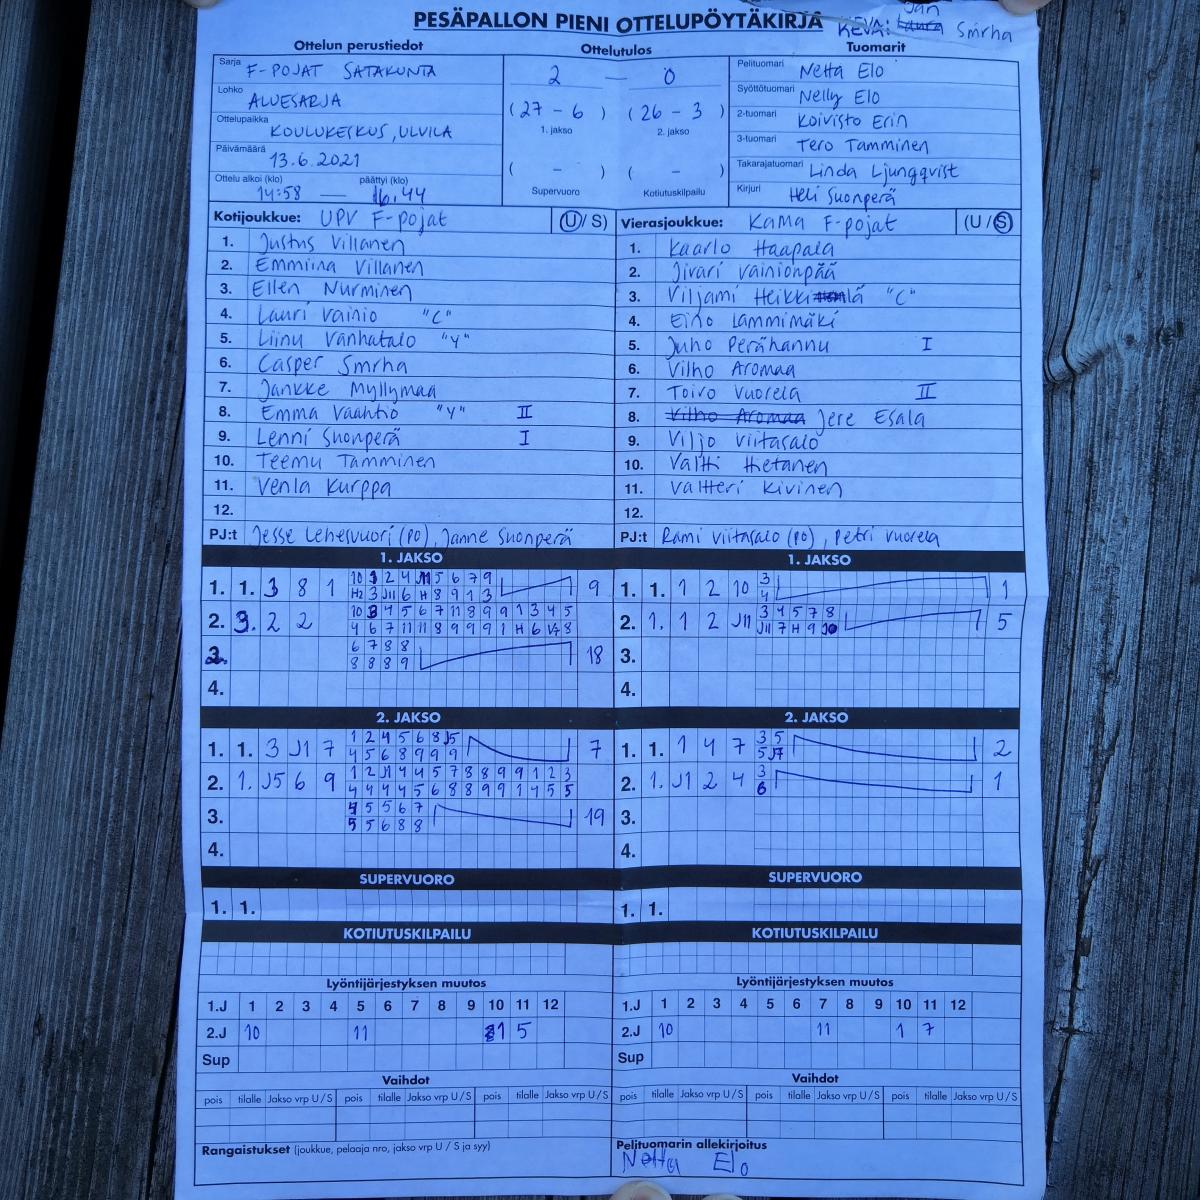 PESÄPALLON PIENI OTTELUPÖYTÄKIRJA
Jan
KEVA: Laura Smrha
Ottelun perustiedot
Ottelutulos
Tuomarit
Sarja F-POJAT SATAKUNTA
Lohko ALUESARJA
Ottelupaikka KOULUKESKUS, ULVILA
Päivämäärä 13.6.2021
Ottelu alkoi (klo) päättyi (klo)
14:58 — 16.44
2 — 0
(27 - 6) (26 - 3)
1. jakso 2. jakso
( - ) ( - )
Supervuoro Kotiutuskilpailu
Pelituomari Netta Elo
Syöttötuomari Nelly Elo
2-tuomari Koivisto Erin
3-tuomari Tero Tamminen
Takarajatuomari Linda Ljungqvist
Kirjuri Heli Suonperä
Kotijoukkue: UPV F-pojat (U/S)
1. Justus Villanen
2. Emmiina Villanen
3. Ellen Nurminen
4. Lauri Vainio "C"
5. Liinu Vanhatalo "Y"
6. Casper Smrha
7. Jankke Myllymaa
8. Emma Vaahtio "Y" II
9. Lenni Suonperä I
10. Teemu Tamminen
11. Venla Kurppa
12.
PJ:t Jesse Lehesvuori (PO), Janne Suonperä
Vierasjoukkue: KaMa F-pojat (U/S)
1. Kaarlo Haapala
2. Iivari Vainionpää
3. Viljami Heikkilä "C"
4. Eino Lammimäki
5. Juho Perähannu I
6. Vilho Aromaa
7. Toivo Vuorela II
8. Vilho Aromaa Jere Esala
9. Viljo Viitasalo
10. Valtti Hietanen
11. Valtteri Kivinen
12.
PJ:t Rami Viitasalo (PO), Petri Vuorela
1. JAKSO
1. 1. 3 8 1
10 3 2 4 J11 5 6 7 9
H2 3 J11 6 H 8 9 1 3
9
2. 3. 2 2
10 3 4 5 6 7 11 8 9 9 1 3 4 5
4 6 7 11 11 8 9 9 9 1 H 6 8
3.
6 7 8 8
8 8 8 9
18
4.
1. JAKSO
1. 1. 1 2 10
3
4
1
2. 1. 1 2 J11
3 4 5 7 8
J11 7 H 9 10
5
3.
4.
2. JAKSO
1. 1. 3 J1 7
1 2 4 5 6 8 J5
4 5 6 8 9 9 9
7
2. 1. J5 6 9
1 2 J1 4 4 5 7 8 8 9 9 1 2 3
4 4 4 4 5 6 8 8 9 9 1 4 5 5
3.
4 5 5 6 7
5 5 6 8 8
19
4.
2. JAKSO
1. 1. 1 4 7
3 5
5 J7
2
2. 1. J1 2 4
3
6
1
3.
4.
SUPERVUORO
1. 1.
SUPERVUORO
1. 1.
KOTIUTUSKILPAILU
KOTIUTUSKILPAILU
Lyöntijärjestyksen muutos
1.J 1 2 3 4 5 6 7 8 9 10 11 12
2.J 10 11 1 5
Sup
Lyöntijärjestyksen muutos
1.J 1 2 3 4 5 6 7 8 9 10 11 12
2.J 10 11 1 7
Sup
Vaihdot
pois tilalle Jakso vrp U/S pois tilalle Jakso vrp U/S pois tilalle Jakso vrp U/S
Vaihdot
pois tilalle Jakso vrp U/S pois tilalle Jakso vrp U/S pois tilalle Jakso vrp U/S
Rangaistukset (joukkue, pelaaja nro, jakso vrp U / S ja syy)
Pelituomarin allekirjoitus
Netta Elo